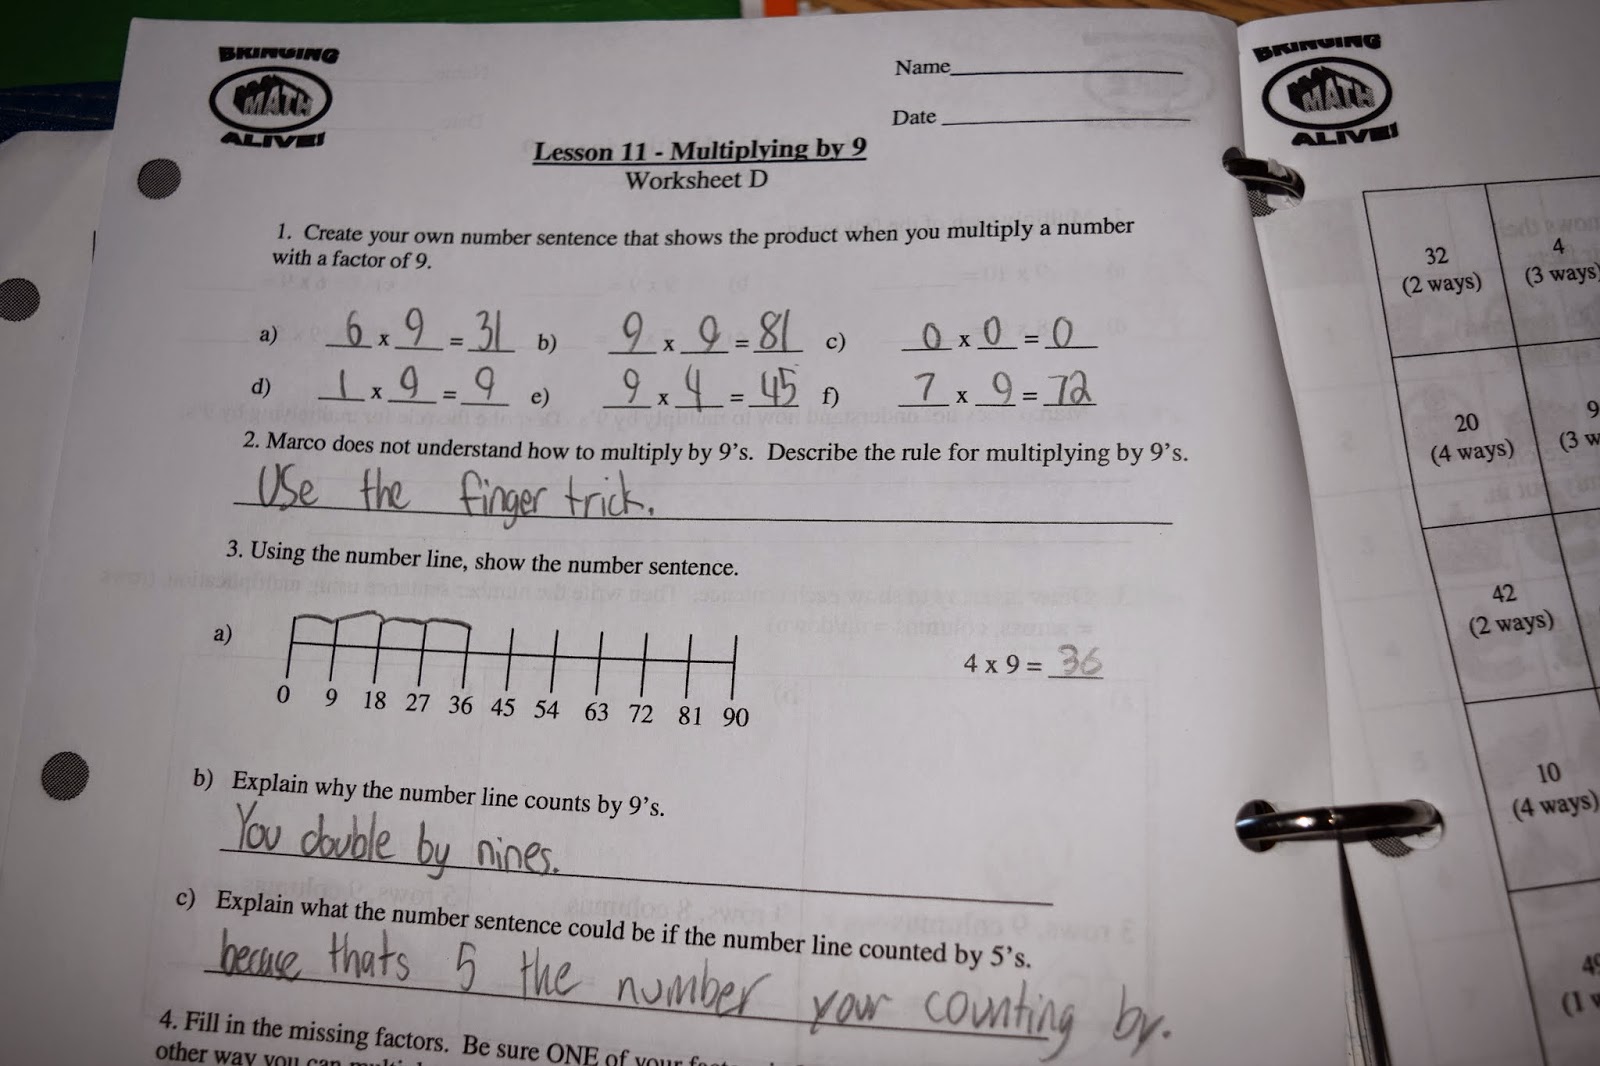 BRINGING
MATH
ALIVE!
Name
Date
Lesson 11 - Multiplying by 9
Worksheet D
1. Create your own number sentence that shows the product when you multiply a number
with a factor of 9.
a) 6 x 9 = 31 b) 9 x 9 = 81 c) 0 x 0 = 0
d) 1 x 9 = 9 e) 9 x 4 = 45 f) 7 x 9 = 72
2. Marco does not understand how to multiply by 9's. Describe the rule for multiplying by 9's.
Use the finger trick.
3. Using the number line, show the number sentence.
a)
0 9 18 27 36 45 54 63 72 81 90
4 x 9 = 36
b) Explain why the number line counts by 9's.
You double by nines.
c) Explain what the number sentence could be if the number line counted by 5's.
becuse thats 5 the number your counting by.
4. Fill in the missing factors. Be sure ONE of your
other way you can
BRINGING
MATH
ALIVE!
32
(2 ways)
4
(3 ways)
20
(4 ways)
9
(3 w
42
(2 ways)
10
(4 ways)
49
(1